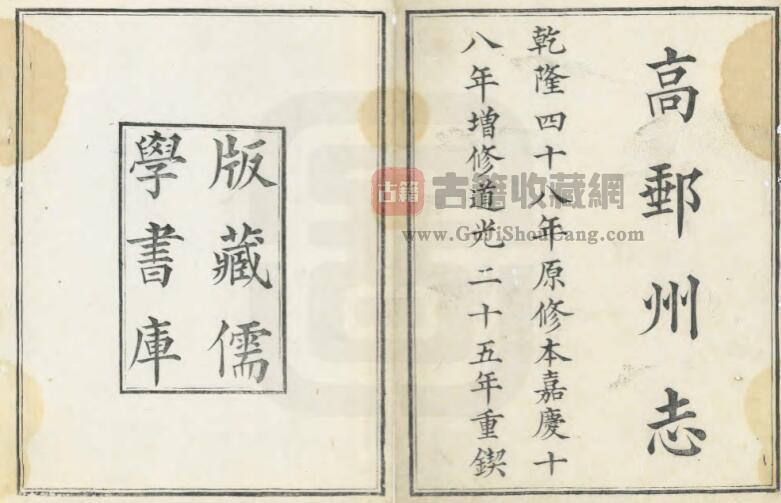 高郵州志
乾隆四十八年原修本嘉慶十
八年增修道光二十五年重鍥
版藏儒
學書庫
古籍
古籍收藏網
www.GuJiShouCang.com